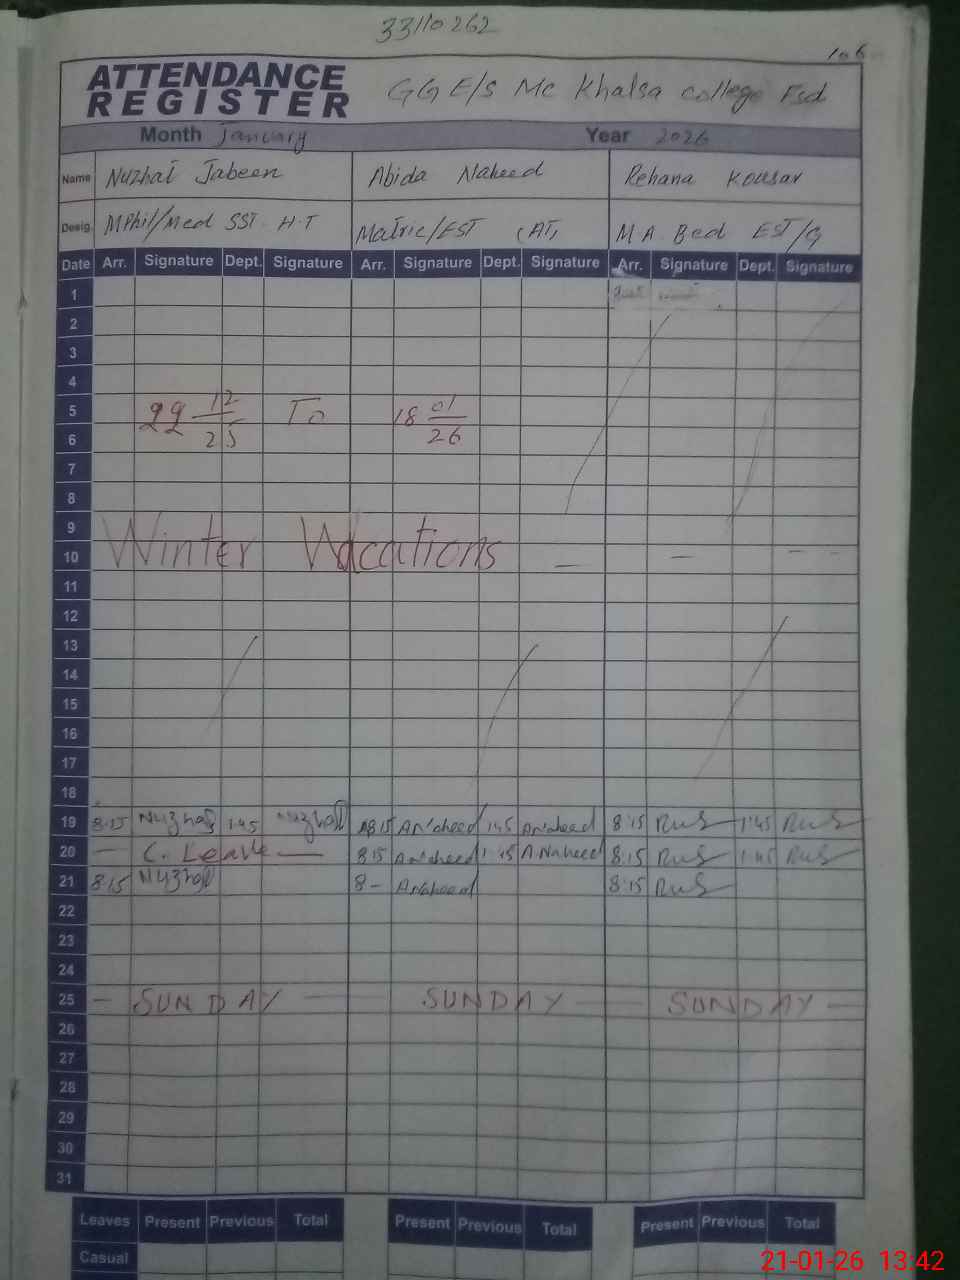 33110262
106
ATTENDANCE REGISTER GGE/s Mc Khalsa college Fsd
Month January Year 2026
Name Nuzhat Jabeen Abida Naheed Rehana Kousar
Desig. MPhil/Med SST H.T Matric/EST (AT) M.A. Bed EST/G
Date Arr. Signature Dept. Signature Arr. Signature Dept. Signature Arr. Signature Dept. Signature
1
2
3
4
5
22 12/25 To 18 01/26
6
7
8
9
Winter Vacations
10
11
12
13
14
15
16
17
18
19 8:15 Nuzhat 1:45 Nuzhat 8:15 A.Naheed 1:45 A.Naheed 8:15 1:45
20 — C. Leave — 8:15 A.Naheed 1:45 A.Naheed 8:15 1:45
21 8:15 Nuzhat 8- A.Naheed 8:15
22
23
24
25 — SUNDAY — SUNDAY — SUNDAY —
26
27
28
29
30
31
Leaves Present Previous Total Present Previous Total Present Previous Total
Casual
21-01-26 13:42